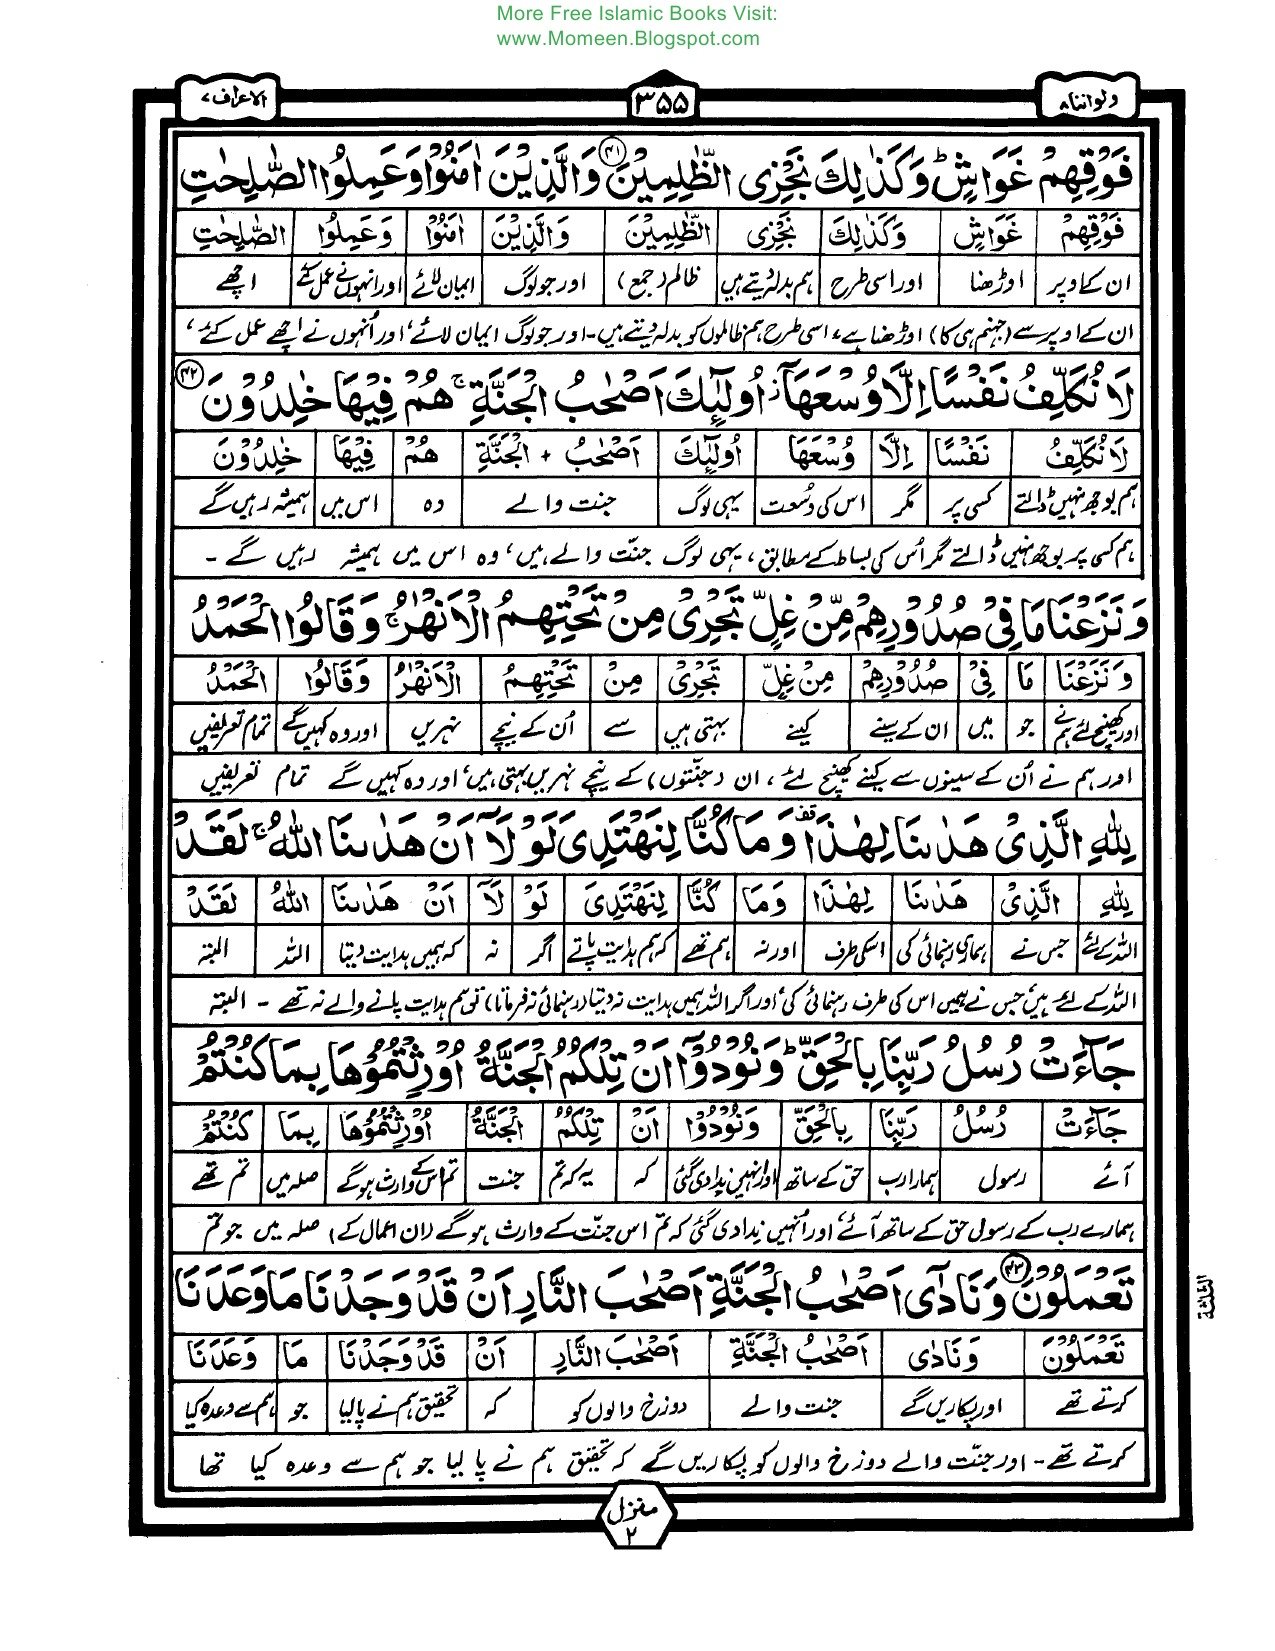 More Free Islamic Books Visit:
www.Momeen.Blogspot.com
ولواننا ۸
۳۵۵
الاعراف ۷
فَوْقِهِمْ غَوَاشٍ ؕ وَكَذٰلِكَ نَجْزِی الظّٰلِمِیْنَ ۴۱ وَالَّذِیْنَ اٰمَنُوْا وَعَمِلُوا الصّٰلِحٰتِ
فَوْقِهِمْ غَوَاشٍ وَكَذٰلِكَ نَجْزِی الظّٰلِمِیْنَ وَالَّذِیْنَ اٰمَنُوْا وَعَمِلُوا الصّٰلِحٰتِ
ان کے اوپر اوڑھنا اور اسی طرح ہم بدلہ دیتے ہیں ظالم (جمع) اور جو لوگ ایمان لائے اور انہوں نے عمل کئے اچھے
ان کے اوپر سے (جہنم ہی کا) اوڑھنا ہے، اسی طرح ہم ظالموں کو بدلہ دیتے ہیں۔ اور جو لوگ ایمان لائے، اور اُنہوں نے اچھے عمل کئے،
لَا نُكَلِّفُ نَفْسًا اِلَّا وُسْعَهَاۤ ز اُولٰٓئِكَ اَصْحٰبُ الْجَنَّةِ ۚ هُمْ فِیْهَا خٰلِدُوْنَ ۴۲
لَا نُكَلِّفُ نَفْسًا اِلَّا وُسْعَهَا اُولٰٓئِكَ اَصْحٰبُ + الْجَنَّةِ هُمْ فِیْهَا خٰلِدُوْنَ
ہم بوجھ نہیں ڈالتے کسی پر مگر اس کی وسعت یہی لوگ جنت والے وہ اس میں ہمیشہ رہیں گے
ہم کسی پر بوجھ نہیں ڈالتے مگر اُس کی بساط کے مطابق، یہی لوگ جنّت والے ہیں، وہ اس میں ہمیشہ رہیں گے ۔
وَنَزَعْنَا مَا فِیْ صُدُوْرِهِمْ مِّنْ غِلٍّ تَجْرِیْ مِنْ تَحْتِهِمُ الْاَنْهٰرُ ۚ وَقَالُوا الْحَمْدُ
وَنَزَعْنَا مَا فِیْ صُدُوْرِهِمْ مِنْ غِلٍّ تَجْرِیْ مِنْ تَحْتِهِمُ الْاَنْهٰرُ وَقَالُوا الْحَمْدُ
اور کھینچ لئے ہم نے جو میں ان کے سینے کینے بہتی ہیں سے اُن کے نیچے نہریں اور وہ کہیں گے تمام تعریفیں
اور ہم نے اُن کے سینوں سے کینے کھینچ لئے، ان (جنّتوں) کے نیچے نہریں بہتی ہیں، اور وہ کہیں گے تمام تعریفیں
لِلّٰهِ الَّذِیْ هَدٰىنَا لِهٰذَا ۫ وَمَا كُنَّا لِنَهْتَدِیَ لَوْلَاۤ اَنْ هَدٰىنَا اللّٰهُ ۚ لَقَدْ
لِلّٰهِ الَّذِیْ هَدٰىنَا لِهٰذَا وَمَا كُنَّا لِنَهْتَدِیَ لَوْ لَاۤ اَنْ هَدٰىنَا اللّٰهُ لَقَدْ
اللہ کے لئے جس نے ہماری رہنمائی کی اسکی طرف اور نہ ہم تھے کہ ہم ہدایت پاتے اگر نہ کہ ہمیں ہدایت دیتا اللہ البتہ
اللہ کے لئے ہیں، جس نے ہمیں اس کی طرف رہنمائی کی، اور اگر اللہ ہمیں ہدایت نہ دیتا (رہنمائی نہ فرماتا) تو ہم ہدایت پانے والے نہ تھے ۔ البتہ
جَآءَتْ رُسُلُ رَبِّنَا بِالْحَقِّ ؕ وَنُوْدُوْۤا اَنْ تِلْكُمُ الْجَنَّةُ اُوْرِثْتُمُوْهَا بِمَا كُنْتُمْ
جَآءَتْ رُسُلُ رَبِّنَا بِالْحَقِّ وَنُوْدُوْا اَنْ تِلْكُمُ الْجَنَّةُ اُوْرِثْتُمُوْهَا بِمَا كُنْتُمْ
آئے رسول ہمارا رب حق کے ساتھ اور انہیں ندا دی گئی کہ یہ کہ تم جنت تم اس کے وارث ہو گے صلہ میں تم تھے
ہمارے رب کے رسول حق کے ساتھ آئے، اور اُنہیں ندا دی گئی کہ تم اس جنّت کے وارث ہو گے (ان اعمال کے) صلہ میں جو تم
تَعْمَلُوْنَ ۴۳ وَنَادٰۤی اَصْحٰبُ الْجَنَّةِ اَصْحٰبَ النَّارِ اَنْ قَدْ وَجَدْنَا مَا وَعَدَنَا
تَعْمَلُوْنَ وَنَادٰی اَصْحٰبُ الْجَنَّةِ اَصْحٰبَ النَّارِ اَنْ قَدْ وَجَدْنَا مَا وَعَدَنَا
کرتے تھے اور پکاریں گے جنت والے دوزخ والوں کو کہ تحقیق ہم نے پا لیا جو ہم سے وعدہ کیا
کرتے تھے ۔ اور جنّت والے دوزخ والوں کو پکاریں گے کہ تحقیق ہم نے پا لیا جو ہم سے وعدہ کیا تھا
الثلثة
منزل
۲